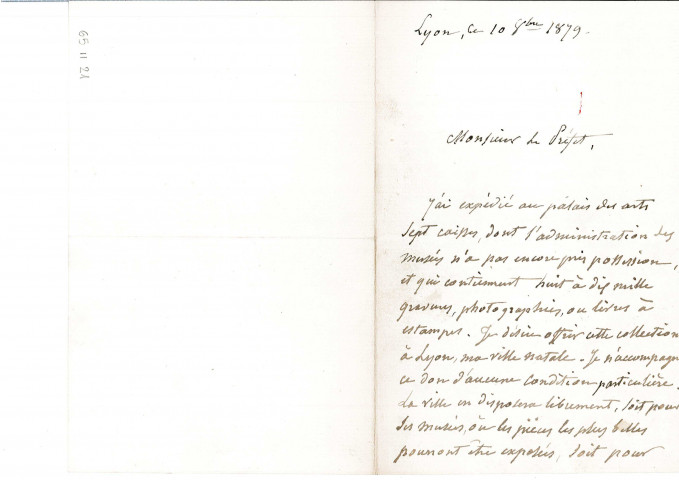 65 11 21
Lyon, ce 10 8bre 1879.
Monsieur le Préfet,
J'ai expédié au palais des arts
sept caisses, dont l'administration des
musées n'a pas encore pris possession,
et qui contiennent huit à dix mille
gravures, photographies, ou livres à
estampes. Je désire offrir cette collection
à Lyon, ma ville natale. Je n'accompagne
ce don d'aucune condition particulière.
La ville en disposera librement, soit pour
ses musées, où les pièces les plus belles
pourront être exposées, soit pour